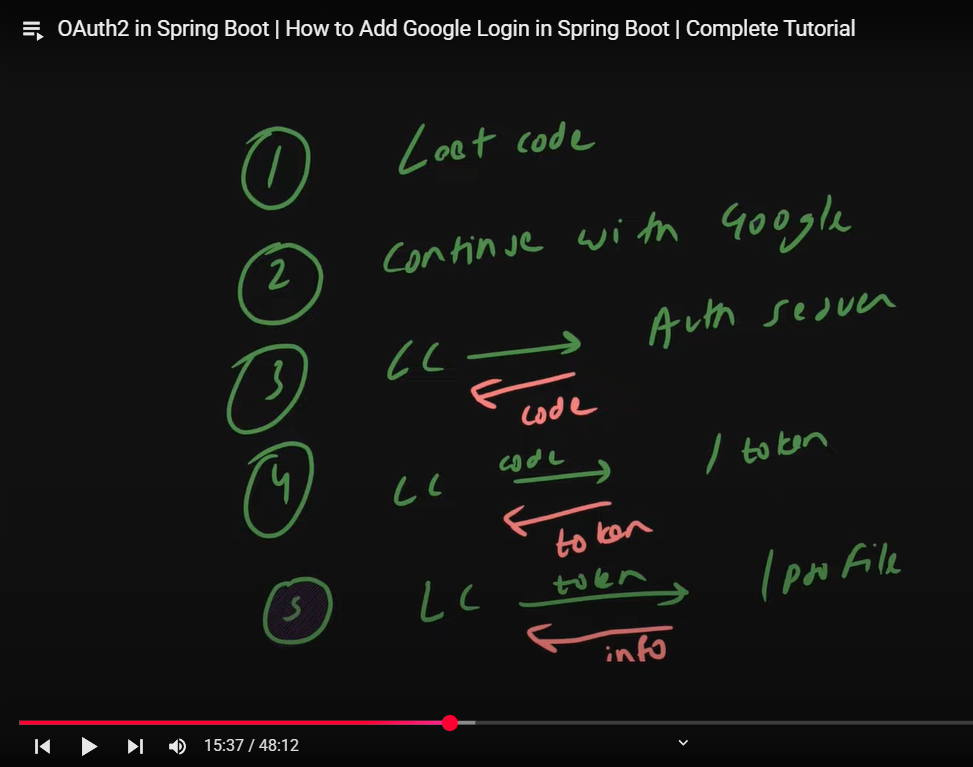 OAuth2 in Spring Boot | How to Add Google Login in Spring Boot | Complete Tutorial
1 Leet code
2 Continue with Google
3 LC Auth server
code
4 LC code / token
token
5 LC token / profile
info
15:37 / 48:12